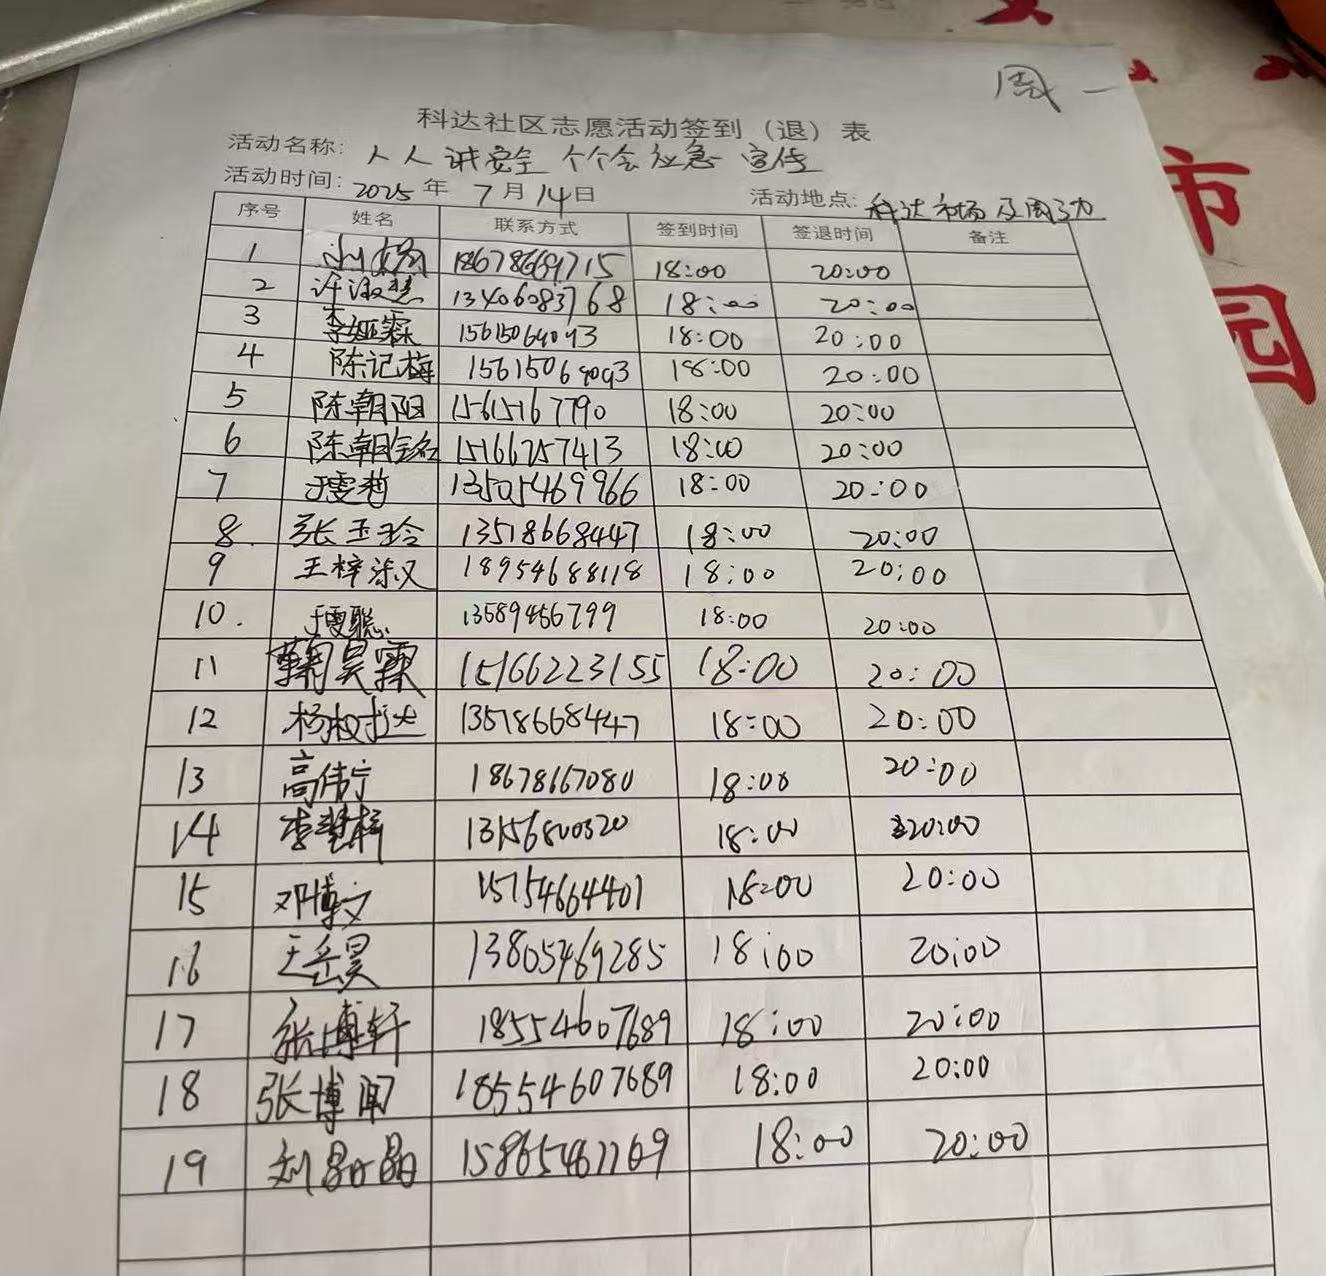 周一
科达社区志愿活动签到（退）表
活动名称：人人讲安全 个个会应急 宣传
活动时间：2025年7月14日 活动地点：科达市场及周边
序号 姓名 联系方式 签到时间 签退时间 备注
1 18678669715 18:00 20:00
2 许淑慧 13406083768 18:00 20:00
3 李娅霖 15615064093 18:00 20:00
4 陈记梅 15615064093 18:00 20:00
5 陈朝阳 15615167790 18:00 20:00
6 陈朝铭 15166757413 18:00 20:00
7 于雯莉 13505469966 18:00 20:00
8 张玉玲 13518668447 18:00 20:00
9 王梓涵 18954688118 18:00 20:00
10. 于雯聪 13589456799 18:00 20:00
11 鞠昊霖 15166223155 18:00 20:00
12 13518668447 18:00 20:00
13 高伟宁 18678667080 18:00 20:00
14 13156800320 18:00 20:00
15 邓博文 15154664401 18:00 20:00
16 王岳昊 13805469285 18:00 20:00
17 张博轩 18554607689 18:00 20:00
18 张博闻 18554607689 18:00 20:00
19 刘晶晶 15865461169 18:00 20:00
市
园